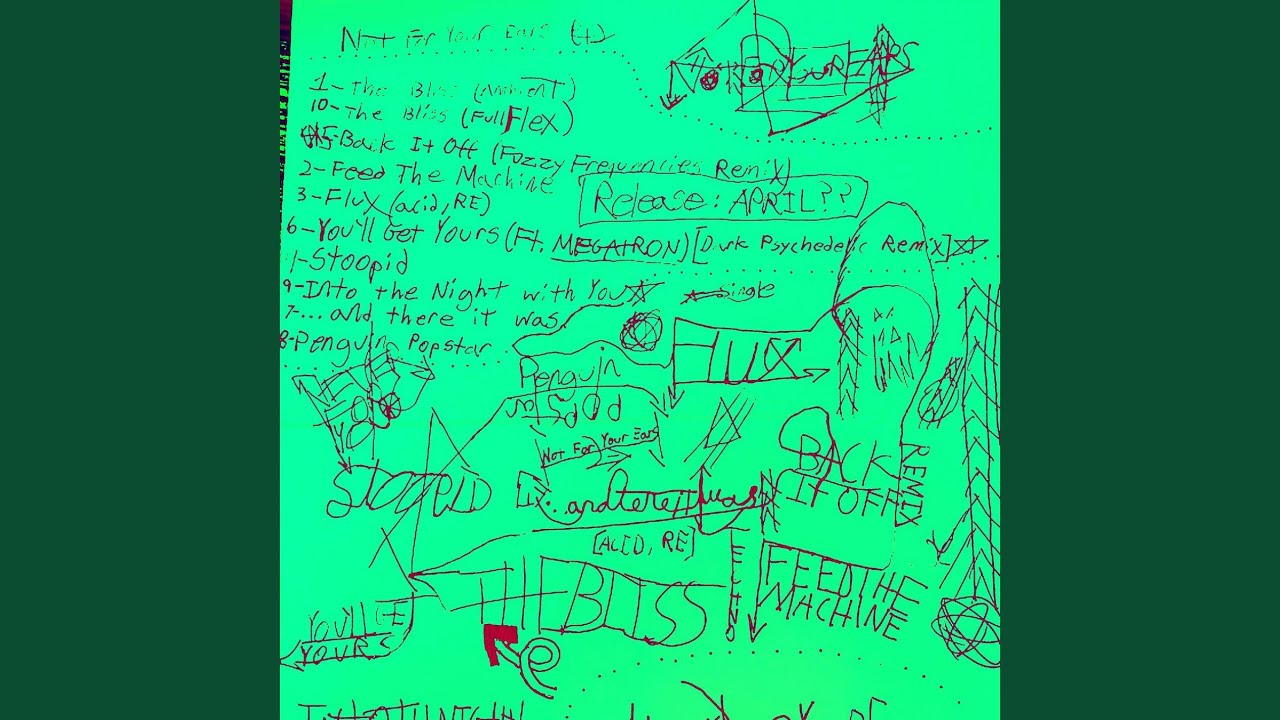 Not For Your Ears (+)
NOT FOR YOUR EARS
1-The Bliss (Ambient)
10-The Bliss (Full Flex)
5-Back It Off (Fozzy Frequencies Remix)
2-Feed The Machine
3-Flux (acid, RE)
Release: APRIL??
6-You'll Get Yours (Ft. MEGATRON) [Dark Psychedelic Remix]
-Stoopid
9-Into the Night with You
Single
7-... and there it was.
8-Penguin Popstar
FLUX
Penguin
Not For Your Ears
BACK
IT OFF
REMIX
STOOPID
...andtereitwas
[ACID, RE]
THE BLISS
FEED THE
MACHINE
YOU'LL GE
YOURS
e